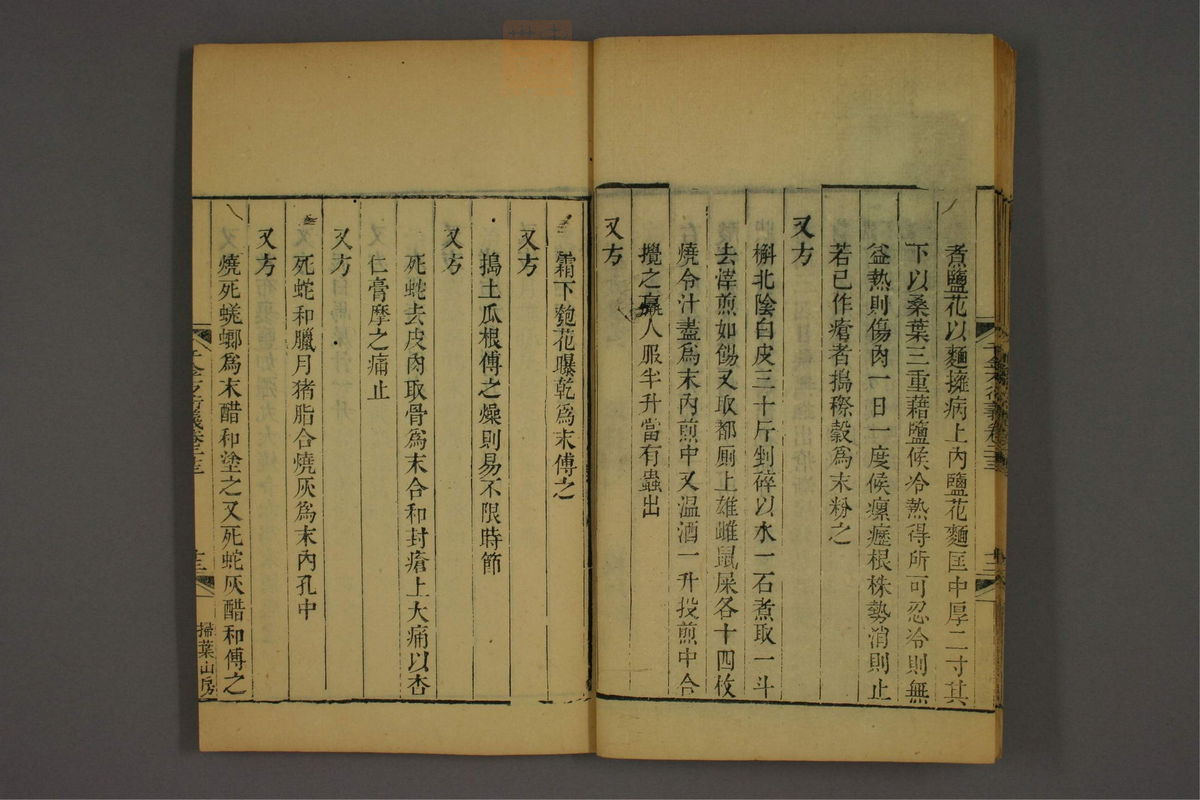 煮鹽花以麵擁病上內鹽花麵匡中厚二寸其
下以桑葉三重藉鹽候冷熱得所可忍冷則無
益熱則傷肉一日一度候瘰癧根株勢消則止
若已作瘡者搗穄穀爲末粉之
又方
槲北陰白皮三十斤剉碎以水一石煮取一斗
去滓煎如餳又取都厠上雄雌鼠屎各十四枚
燒令汁盡爲末內煎中又温酒一升投煎中合
攪之羸人服半升當有蟲出
又方
霜下瓠花曝乾爲末傅之
又方
搗土瓜根傅之燥則易不限時節
又方
死蛇去皮肉取骨爲末合和封瘡上大痛以杏
仁膏摩之痛止
又方
死蛇和臘月猪脂合燒灰爲末內孔中
又方
燒死蜣螂爲末醋和塗之又死蛇灰醋和傅之
千金方衍義卷二十三
十三
掃葉山房